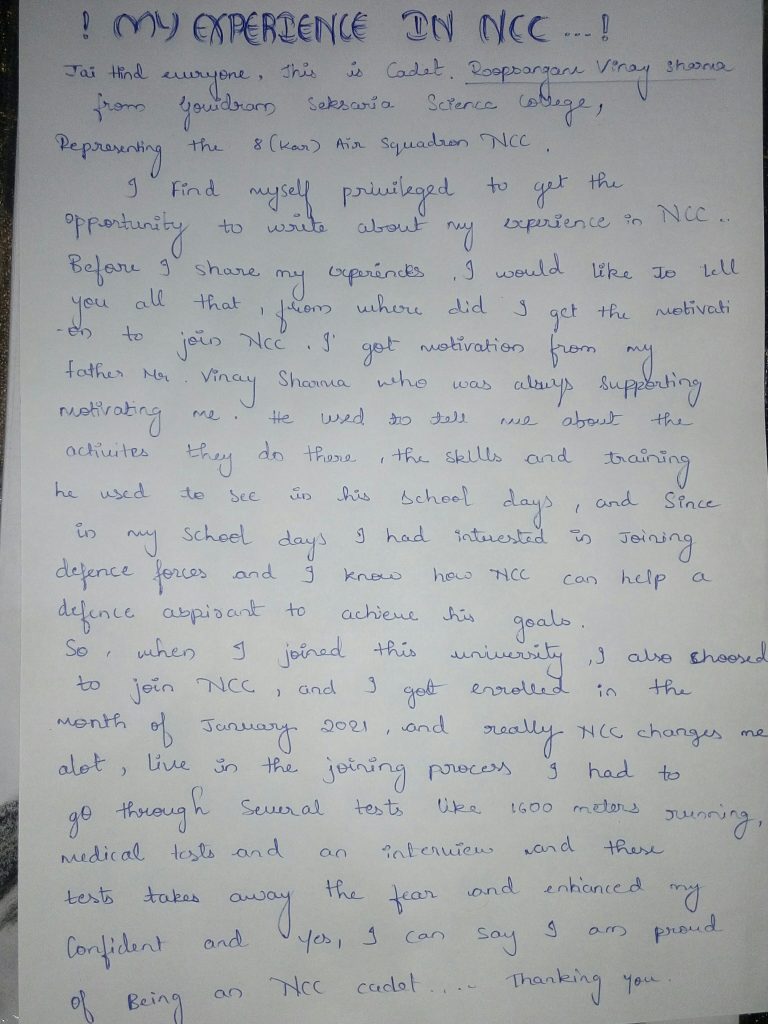 ! MY EXPERIENCE IN NCC ...!
Jai Hind everyone, This is Cadet. Roopsargane Vinay Sharma
from Govidram Seksaria Science College,
Representing the 8 (Kar) Air Squadron NCC.
I Find myself privileged to get the
opportunity to write about my experience in NCC ..
Before I share my experiences, I would like To tell
you all that, from where did I get the motivati
-on to join NCC. I got motivation from my
father Mr. Vinay Sharma who was always supporting
motivating me. He used to tell me about the
activites they do there, the skills and training
he used to see in his school days, and Since
in my school days I had intrested in Joining
defence forces and I know how NCC can help a
defence aspirant to achieve his goals.
So, when I joined this university, I also choosed
to join NCC, and I got enrolled in the
month of January 2021, and really NCC changes me
alot, live in the joining process I had to
go through Several tests like 1600 meters running,
medical tests and an interview and these
tests takes away the fear and enhanced my
Confident and yes, I can say I am proud
of Being an NCC cadet..... Thanking you.